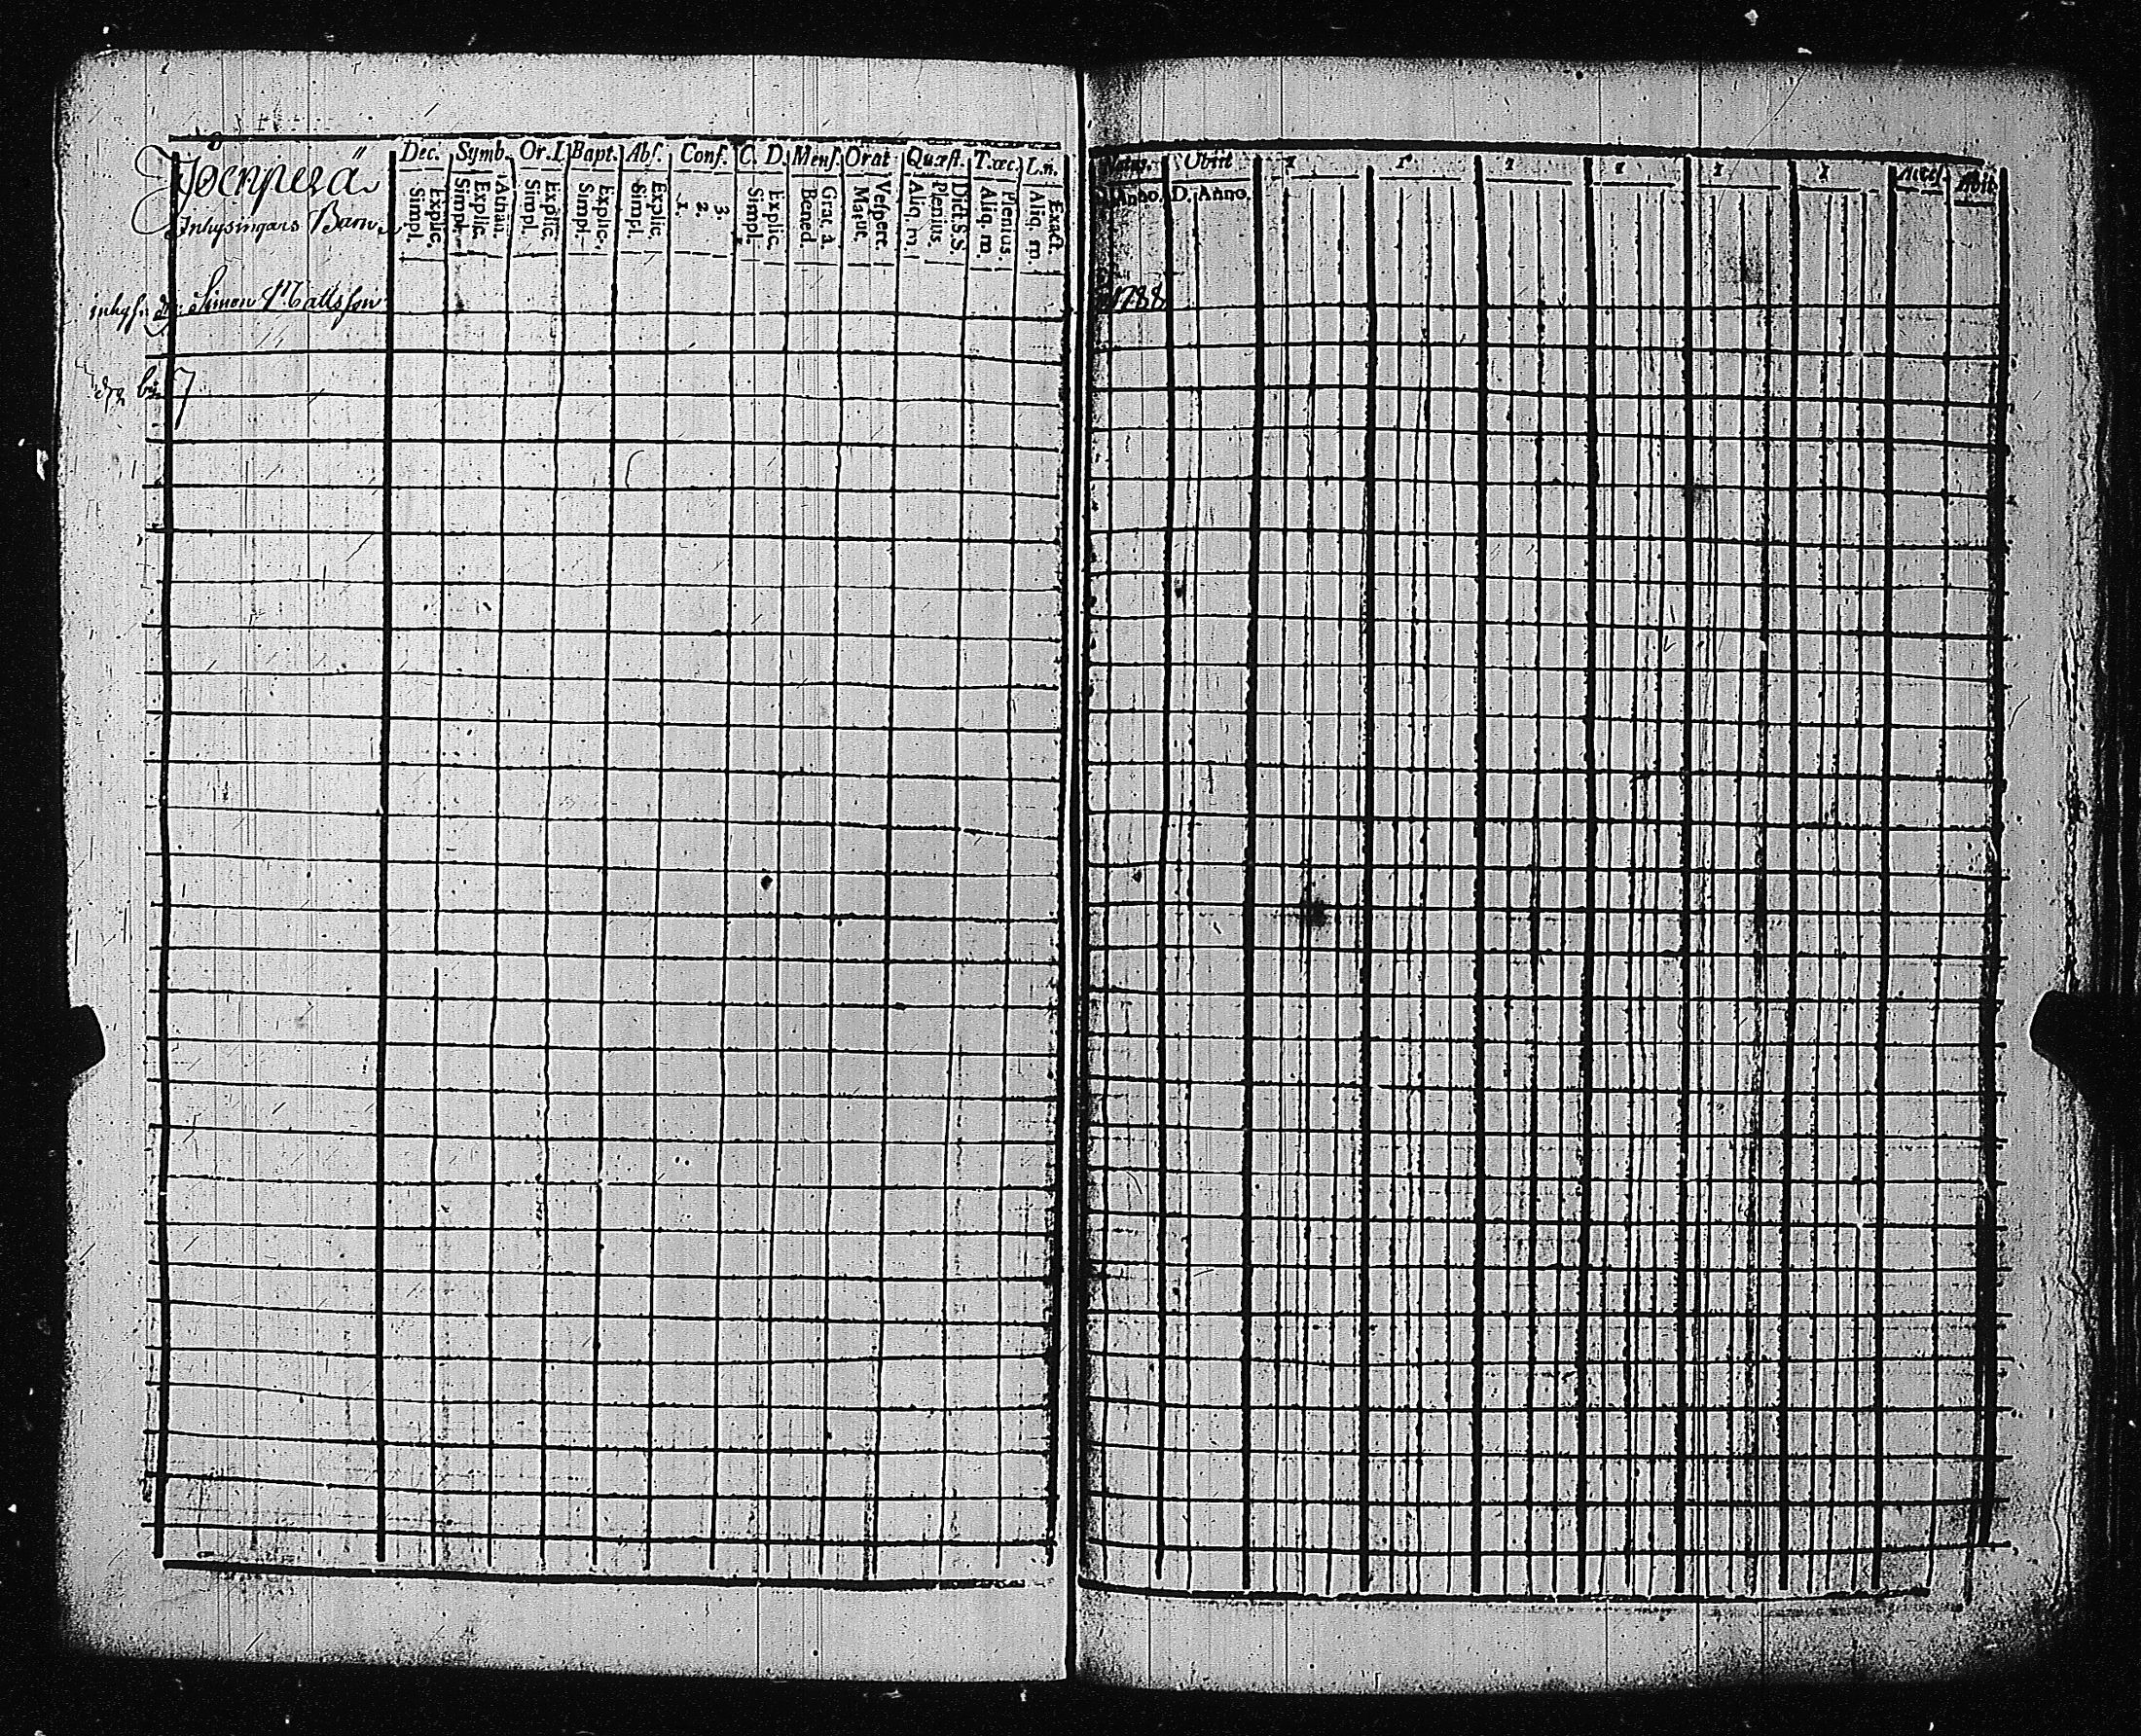 Jocnperä
Inhysingars Barn.
Dec. Symb. Or. I. Bapt. Abſ. Conf. C. D. Menſ. Orat Quæſt. T.œc. L.n.
Explic. Simpl. Athan. Explic. Simpl. Explic. Simpl. Explic. Simpl. Explic. Simpl. 3. 2. 1. Explic. Simpl. Grat. a. Bened. Veſpere. Matut. Dict. S.S. Plenius. Aliq. m. Plenius. Aliq. m. Exact. Aliq. m.
inhyſ. Simon Mattsſon
Natus. Obiit 1 1 1 1 1 1 Acceſ. Abit
D. Anno. D. Anno.
1788